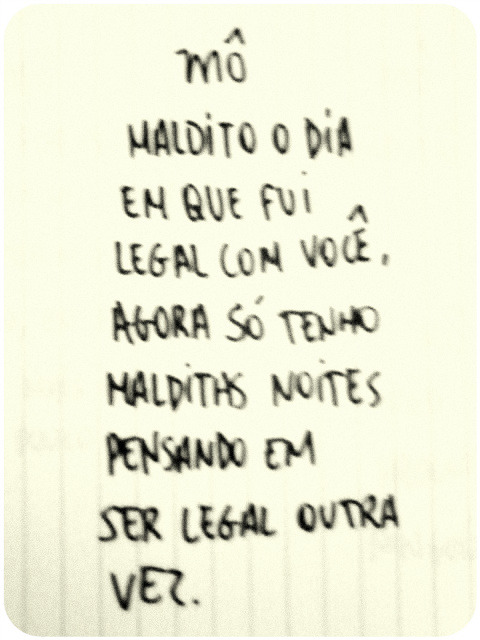 mô
MALDITO O DIA
EM QUE FUI
LEGAL COM VOCÊ,
AGORA SÓ TENHO
MALDITAS NOITES
PENSANDO EM
SER LEGAL OUTRA
VEZ.